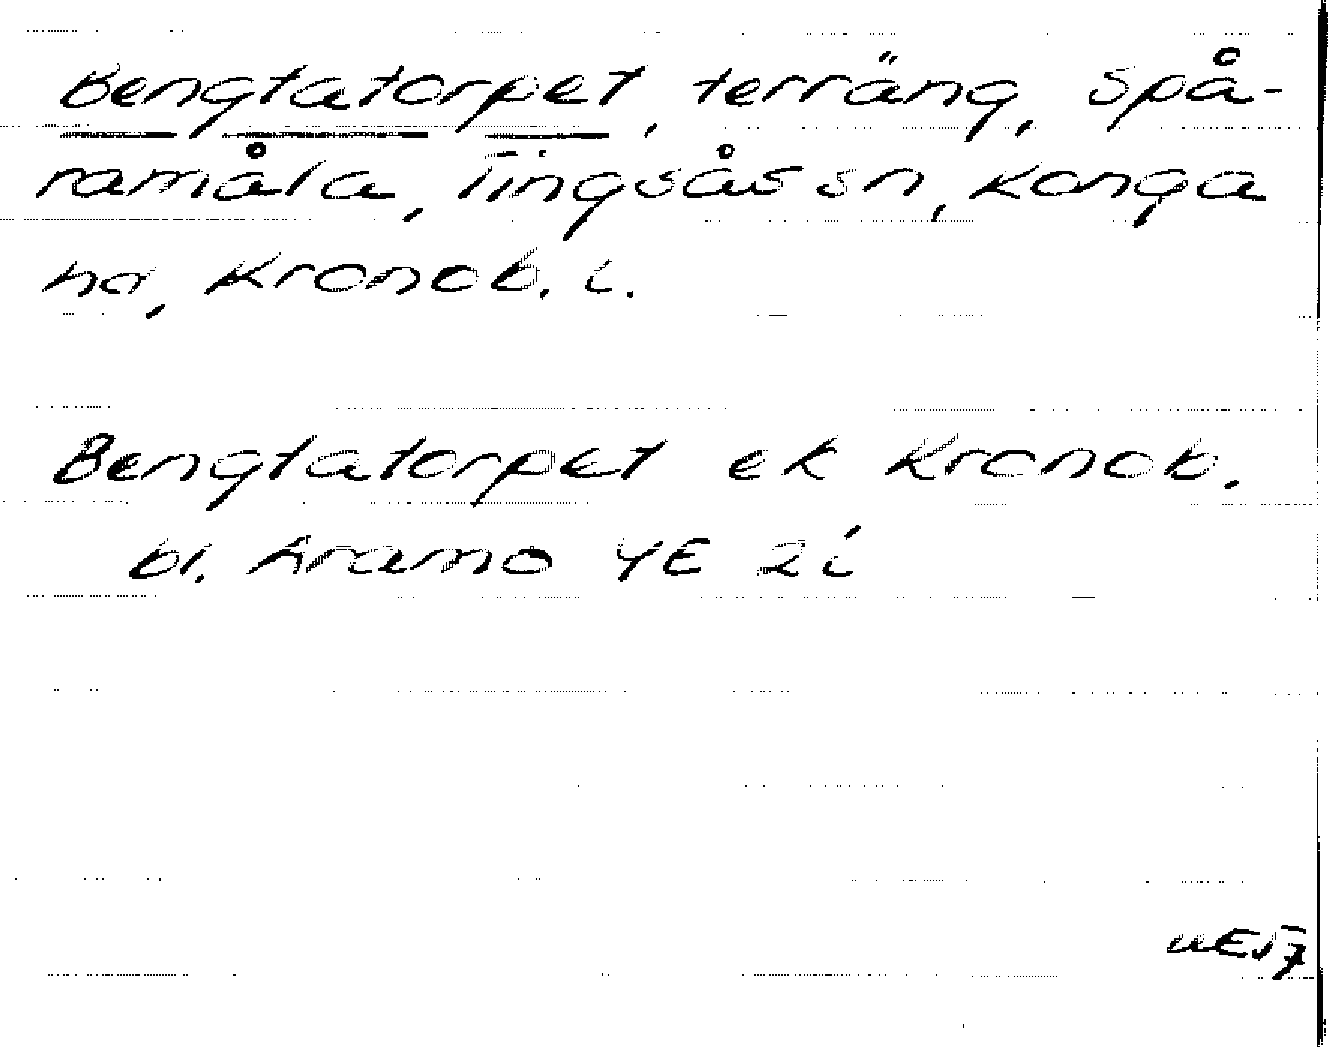 Bengtatorpet, terräng, Spå-
ramåla, Tingsås sn, Konga
hd, Kronob. l.
Bengtatorpet ek Kronob.
bl. Kramo 4E 2i